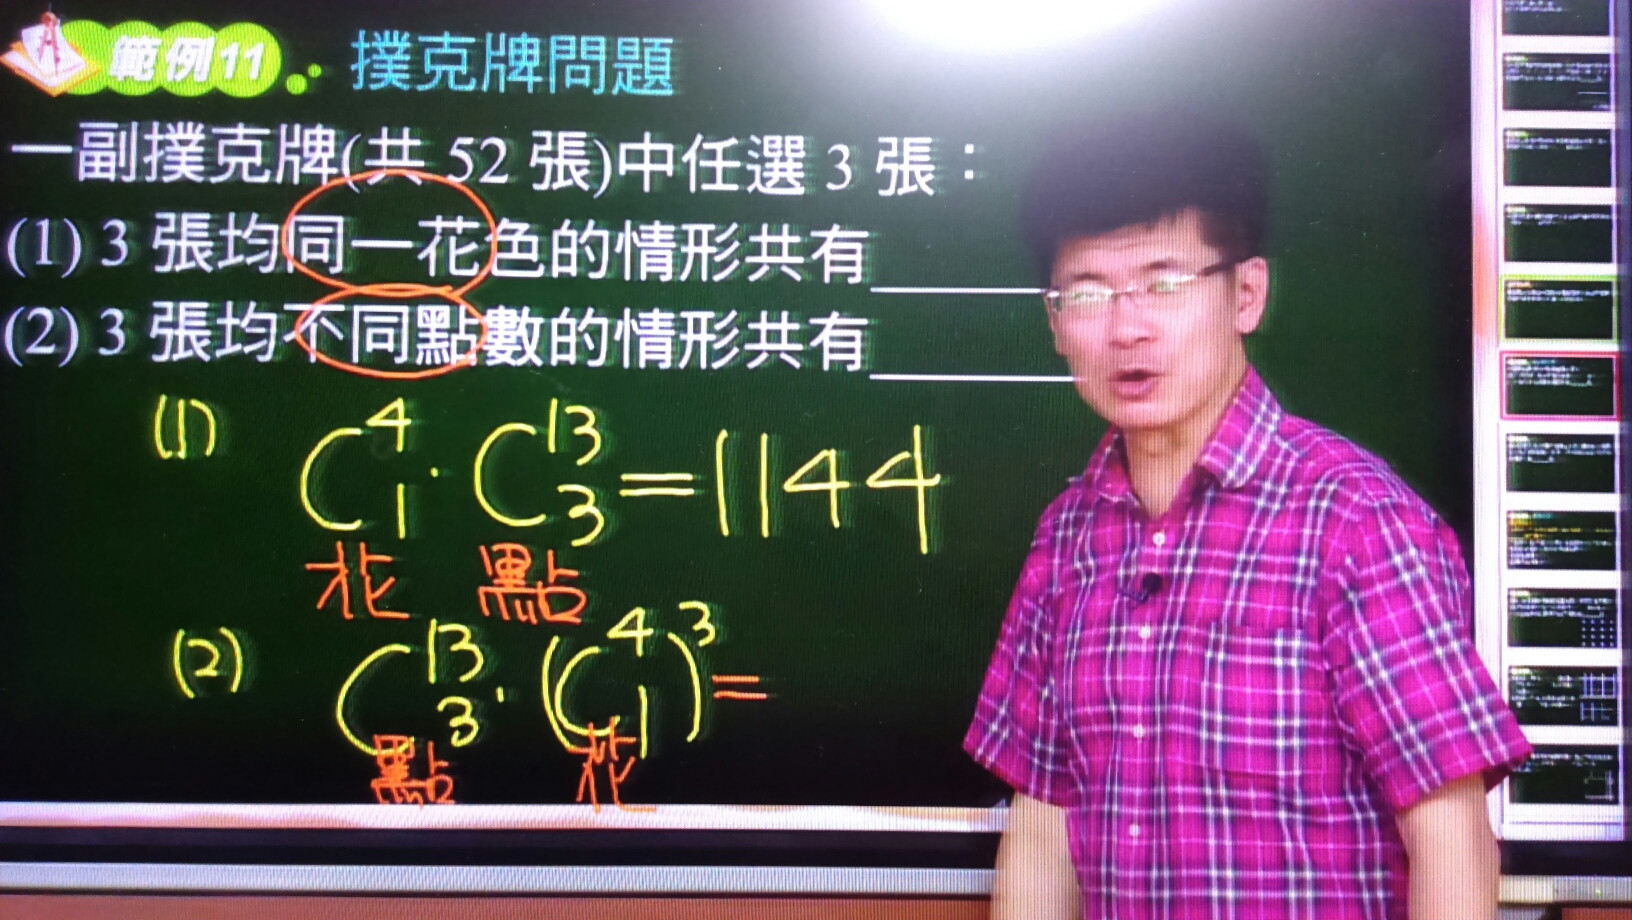 範例11 撲克牌問題
一副撲克牌(共 52 張)中任選 3 張：
(1) 3 張均同一花色的情形共有______
(2) 3 張均不同點數的情形共有______
(1) C⁴₁ · C¹³₃ = 1144
花 點
(2) C¹³₃ · (C⁴₁)³ =
點 花